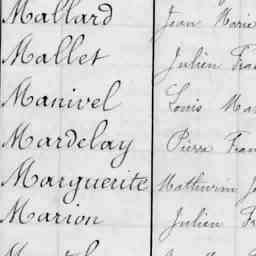 Mallard Jean Marie
Mallet Julien Fra
Manivel Louis Ma
Mardelay Pierre Fran
Marguerite Mathurin J
Marion Julien Fr